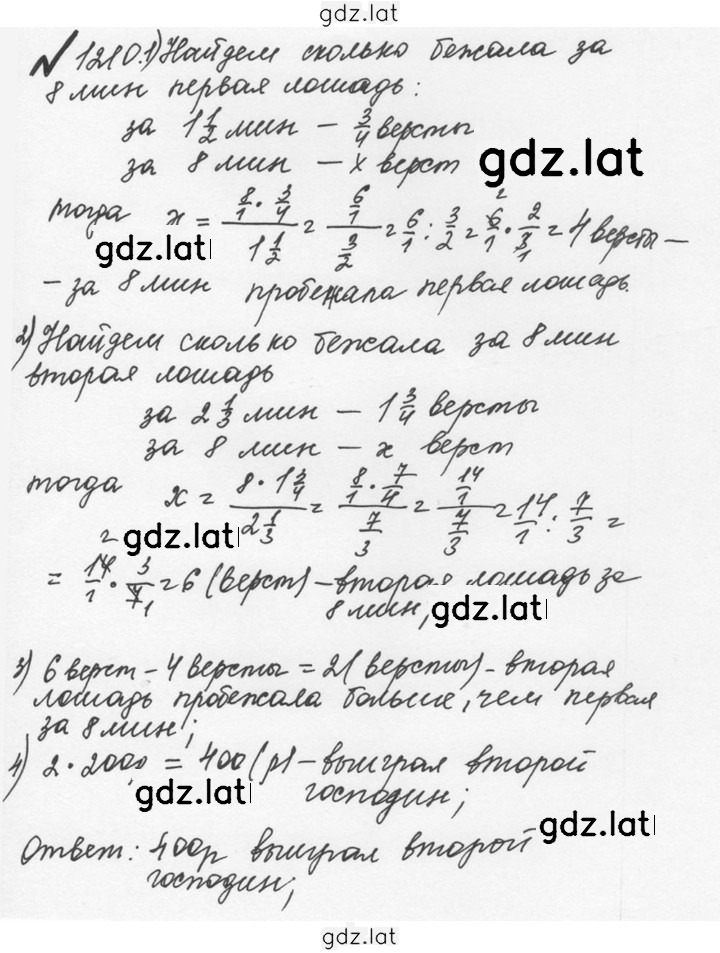 gdz.lat
№ 1210. 1) Найдем сколько бежала за
8 мин первая лошадь:
за 1 1/2 мин – 3/4 версты
за 8 мин – x верст gdz.lat
тогда x = (8/1 · 3/4)/(1 1/2) = (6/1)/(3/2) = 6/1 : 3/2 = 6/1 · 2/3 = 4 версты –
gdz.lat
– за 8 мин пробежала первая лошадь.
2) Найдем сколько бежала за 8 мин
вторая лошадь
за 2 1/3 мин – 1 3/4 версты
за 8 мин – x верст
тогда x = (8 · 1 3/4)/(2 1/3) = (8/1 · 7/4)/(7/3) = (14/1)/(7/3) = 14/1 : 7/3 =
gdz.lat
= 14/1 · 3/7 = 6 (верст) – вторая лошадь за
8 мин, gdz.lat
3) 6 верст – 4 версты = 2 (версты) – вторая
лошадь пробежала больше, чем первая
за 8 мин;
4) 2 · 2000 = 400 (р) – выиграл второй
gdz.lat господин;
Ответ: 400р выиграл второй gdz.lat
господин;
gdz.lat